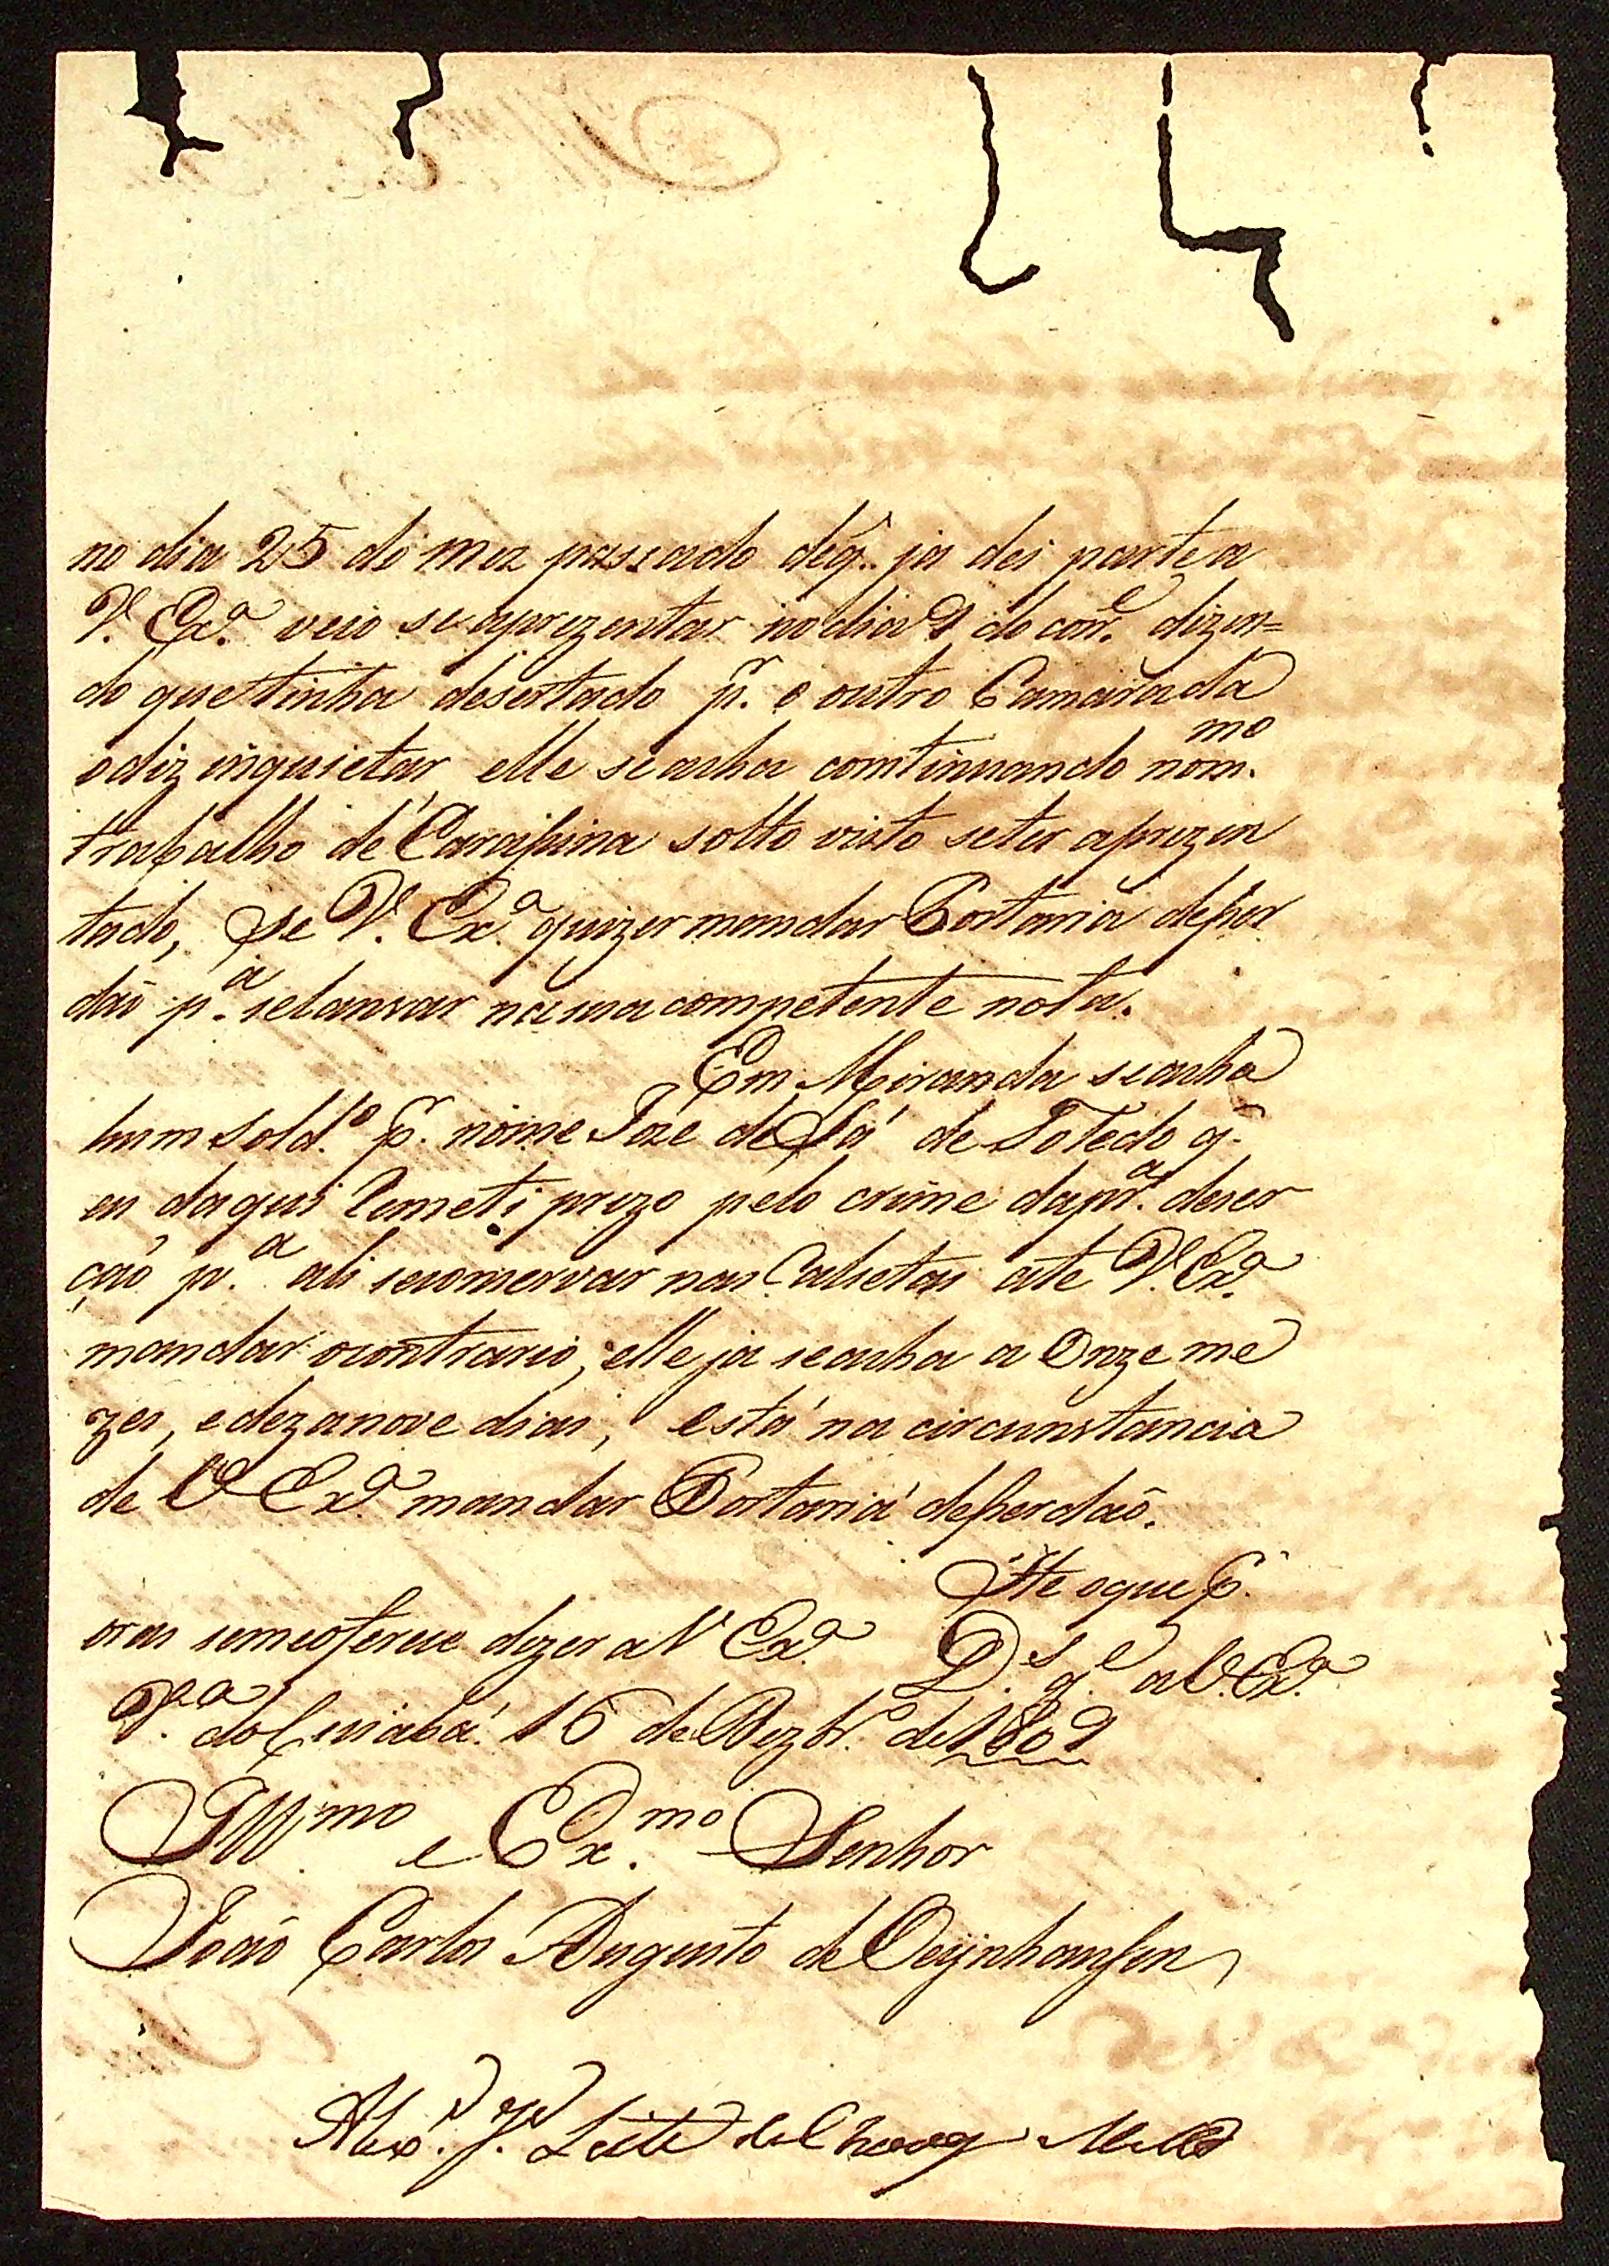 no dia 25 do mez passado deq̃. ja dei parte a
V. Exª. veio se aprezentar no dia 9 do corr.e dizen=
do que tinha desertado p.r o outro Camarada
o diz inquietar, elle seacha comtinuando nom.mo
trabalho de Carapina solto visto seter aprezen
tado, se V. Ex.ª quizer mandar Portaria deper
dão p.ª selansar na sua competente nota.
Em Miranda seacha
hum sold.º p.r nome Joze de Sá de Toledo q̃.
eu daqui Remeti prezo pelo crime dapr.ª deser
ção p.ª ali seconservar nas Calsetas ate V. Ex.ª
mandar ocontrario; elle ja seacha a Onze me
zes, edezanove dias, está na circunstancia
de V Ex.ª mandar Portaria deperdão.
He oque p.r
ora semeoferece dizer a V Ex.ª D.s g.e a V. Ex.ª
V.ª do Cuiabá 16 de Dezbr.º de 1809
Ill.mo e Ex.mo Senhor
João Carlos Augusto de Oeÿnhausen
Alex.e J.e Leite de Chaves Mello